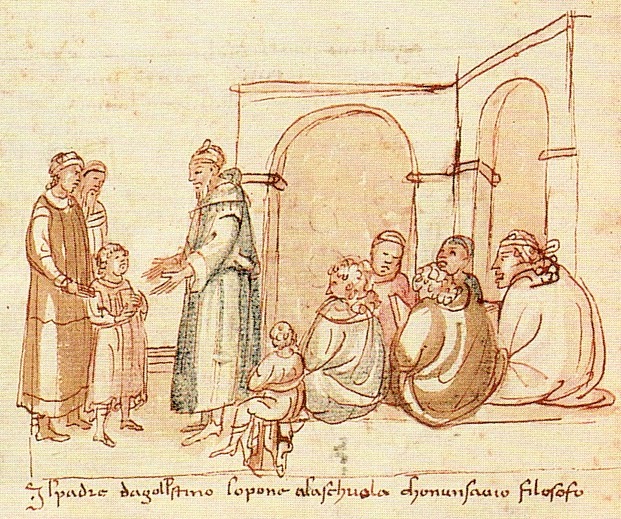 Il padre dagosstino lo pone ala schuola chon un savio filosofo